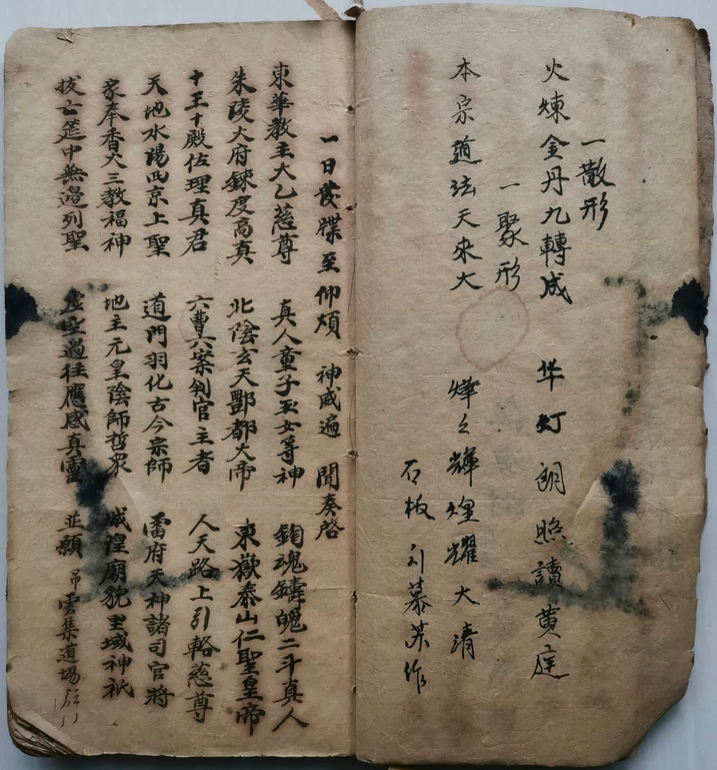 一散形
火煉金丹九轉成 华灯朗照讀黄庭
一聚形
本宗道法天来大 燁之輝煌耀大清
石板 刘慕英作
一日发牒至仰煩 神威遍 聞奏啓
東華教主大乙慈尊 真人童子玉女等神 鉤魂鑄魄二斗真人
朱陵大府鍊度高真 北陰玄天酆都大帝 東嶽泰山仁聖皇帝
十王十殿佐理真君 六曹六案判官主者 人天路上引輅慈尊
天地水陽四京上聖 道門羽化古今宗師 雷府天神諸司官將
家奉香火三教福神 地主元皇陰師哲衆 城隍廟貌里域神祇
拔亡筵中無邉列聖 虚空過往應感真靈 並頼 雲集道場